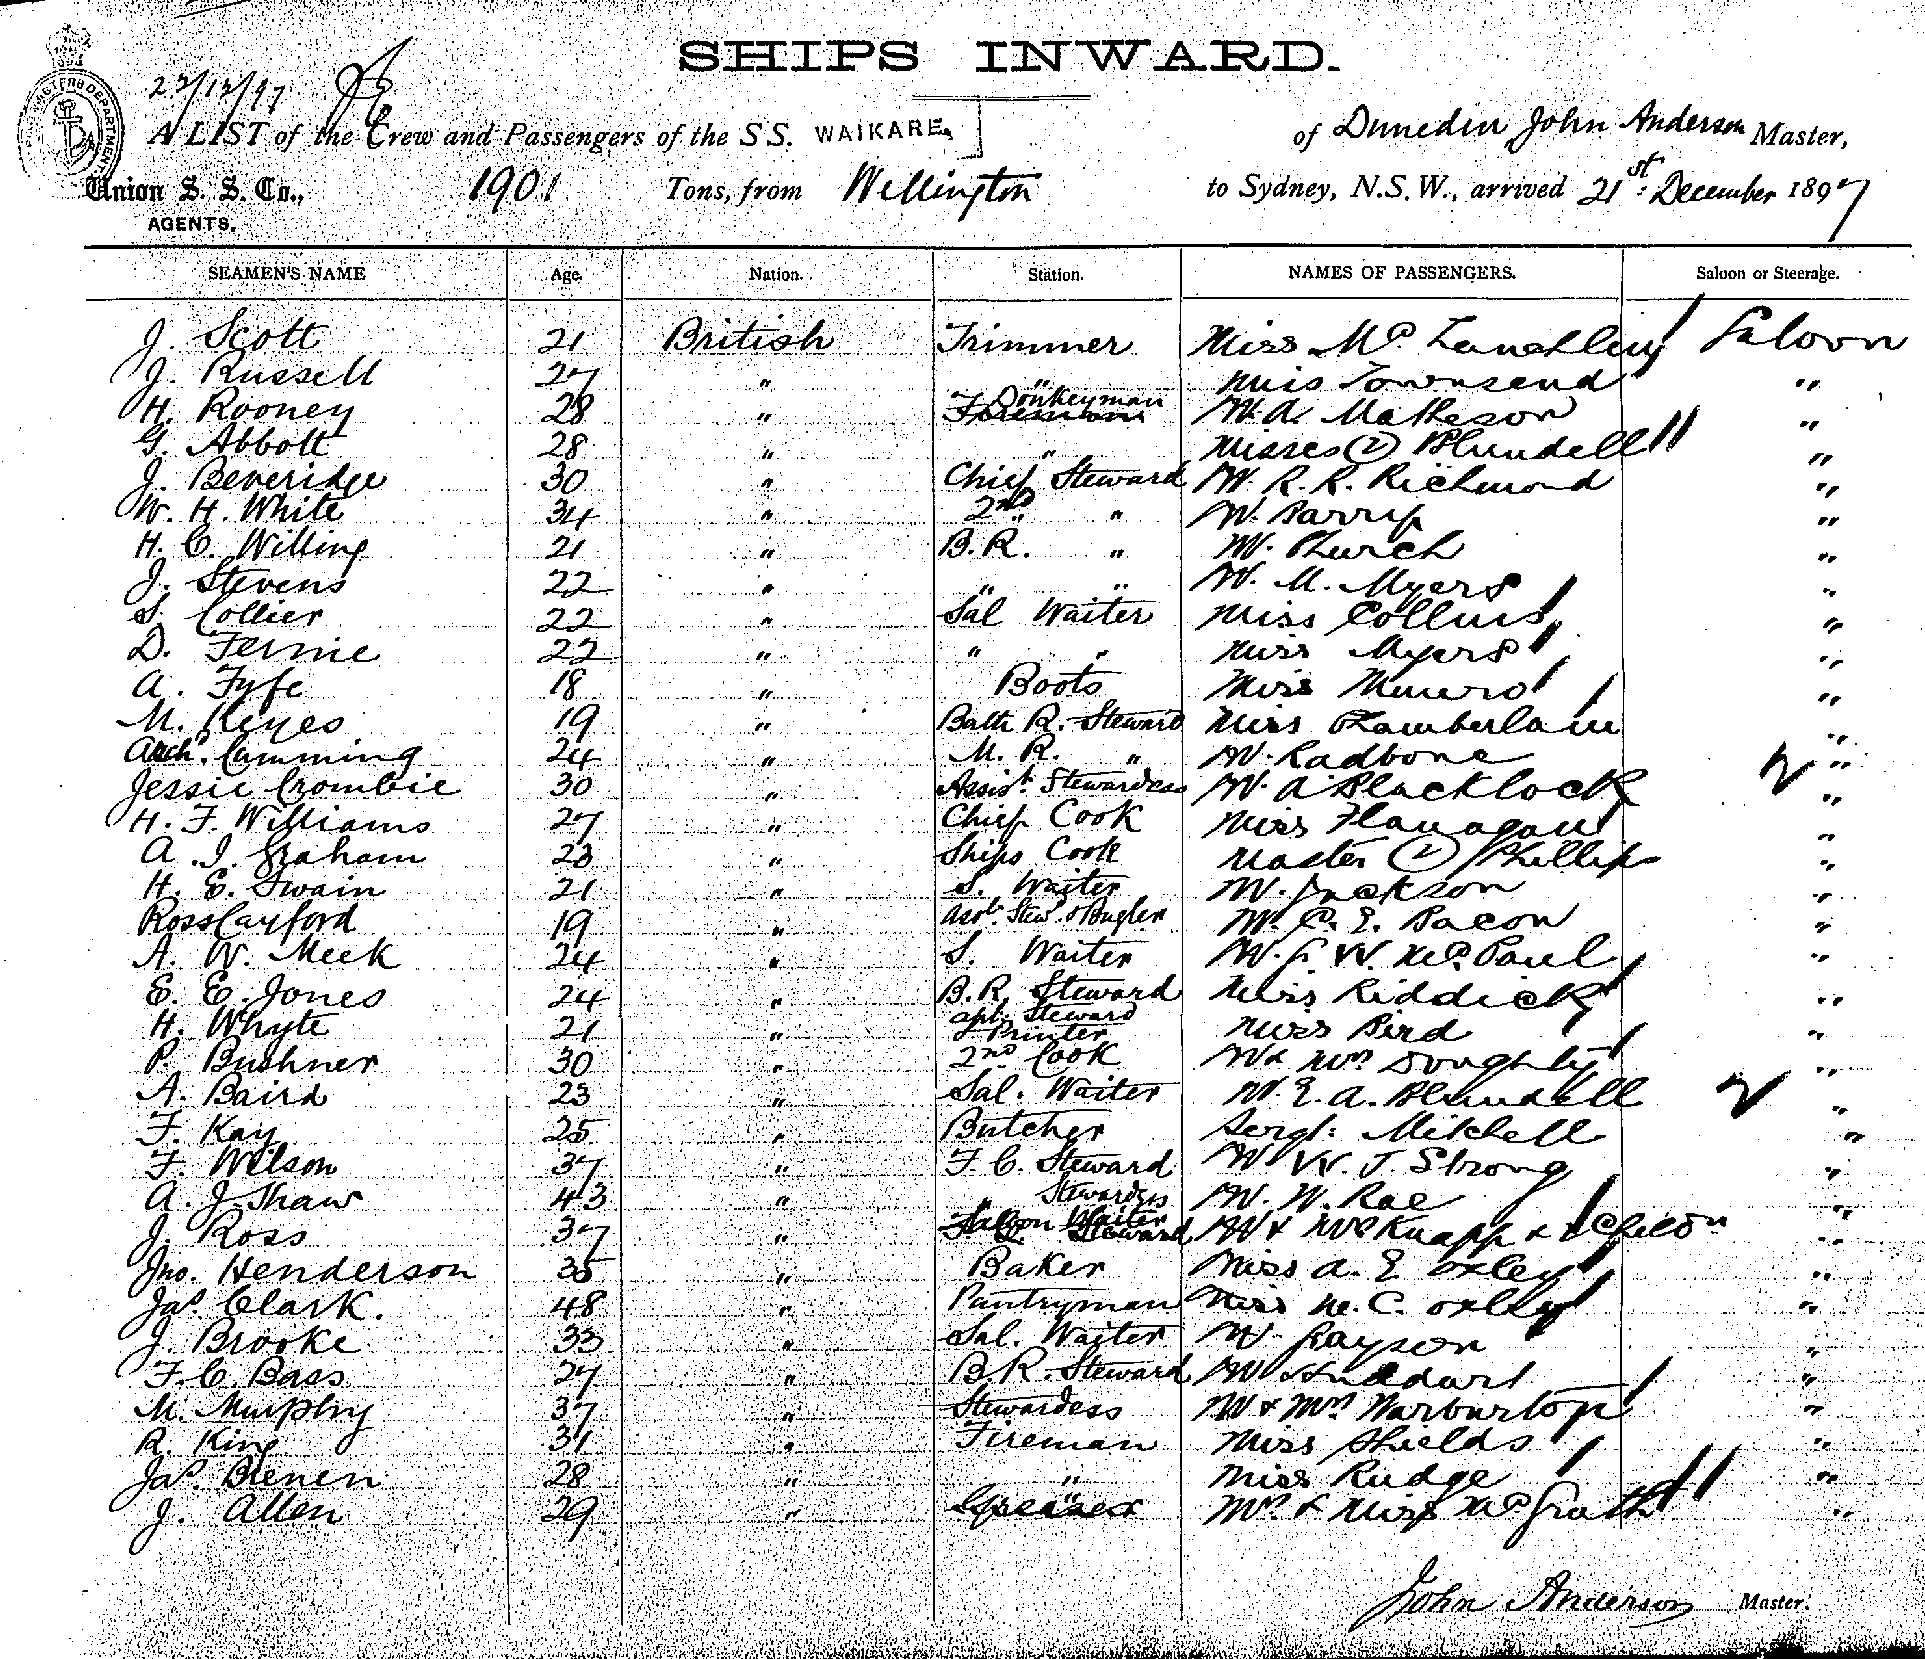 SHIPS INWARD.
22/12/97
A LIST of the Crew and Passengers of the S.S. WAIKARE, of Dunedin John Anderson Master,
Union S. S. Co., 1901 Tons, from Wellington to Sydney, N.S.W., arrived 21st December 1897
AGENTS.
SEAMEN'S NAME Age. Nation. Station. NAMES OF PASSENGERS. Saloon or Steerage.
J. Scott 21 British Trimmer Miss Saloon
J. Russell 27 " " Miss Townsend "
H. Rooney 28 " Donkeyman Mr A. Matheson "
G. Abbott 28 " " Misses (2) Blundell "
J. Beveridge 30 " Chief Steward Mr R. R. Richmond "
W. H. White 34 " 2nd " Mr "
H. C. Willing 21 " B. R. " Mr Church "
J. Stevens 22 " " " Mr M. Myers "
S. Collier 22 " Sal Waiter Miss Collins "
D. Fernie 22 " " " Miss Myers "
A. Fyfe 18 " Boots Miss Munro "
M. Keyes 19 " Bath R. Steward Miss Chamberlain "
Archd. Cumming 24 " M. R. " Mr Radbone "
Jessie Crombie 30 " Assist. Stewardess Mr A Blacklock "
H. F. Williams 27 " Chief Cook Miss Flanagan "
A. J. Graham 23 " Ships Cook Master (2) Phillips "
H. E. Swain 21 " S. Waiter Mr Jackson "
Ross Cayford 19 " Asst. Stewd. & Bugler Mr C. E. Bacon "
A. W. Meek 24 " S. Waiter Mr J. W. McPaul "
E. E. Jones 24 " B. R. Steward Miss Riddick "
H. Whyte 21 " Steward & Printer Miss Bird "
P. Bushner 30 " 2nd Cook Mr & Mrs Doughty "
A. Baird 23 " Sal. Waiter Mr E. A. Blundell "
F. Kay 25 " Butcher Sergt. Mitchell "
F. Wilson 37 " F. C. Steward Mr W. J. Strong "
A. J. Shaw 43 " Stewardess Mr W. Rae "
J. Ross 37 " Saloon Waiter Mr & Mrs Knapp & "
Jno. Henderson 35 " Baker Miss A. E Oxley "
Jas Clark. 48 " Pantryman Miss M. C. Oxley "
J. Brooke 33 " Sal. Waiter Mr Grayson "
F. C. Bass 27 " B. R. Steward Mr Huddart "
M. Murphy 37 " Stewardess Mr & Mrs Warburton "
R. King 31 " Fireman Miss Shields "
Jas. Brenen 28 " " Miss Rudge "
J. Allen 29 " " Mrs & Miss McGrath "
John Anderson Master.